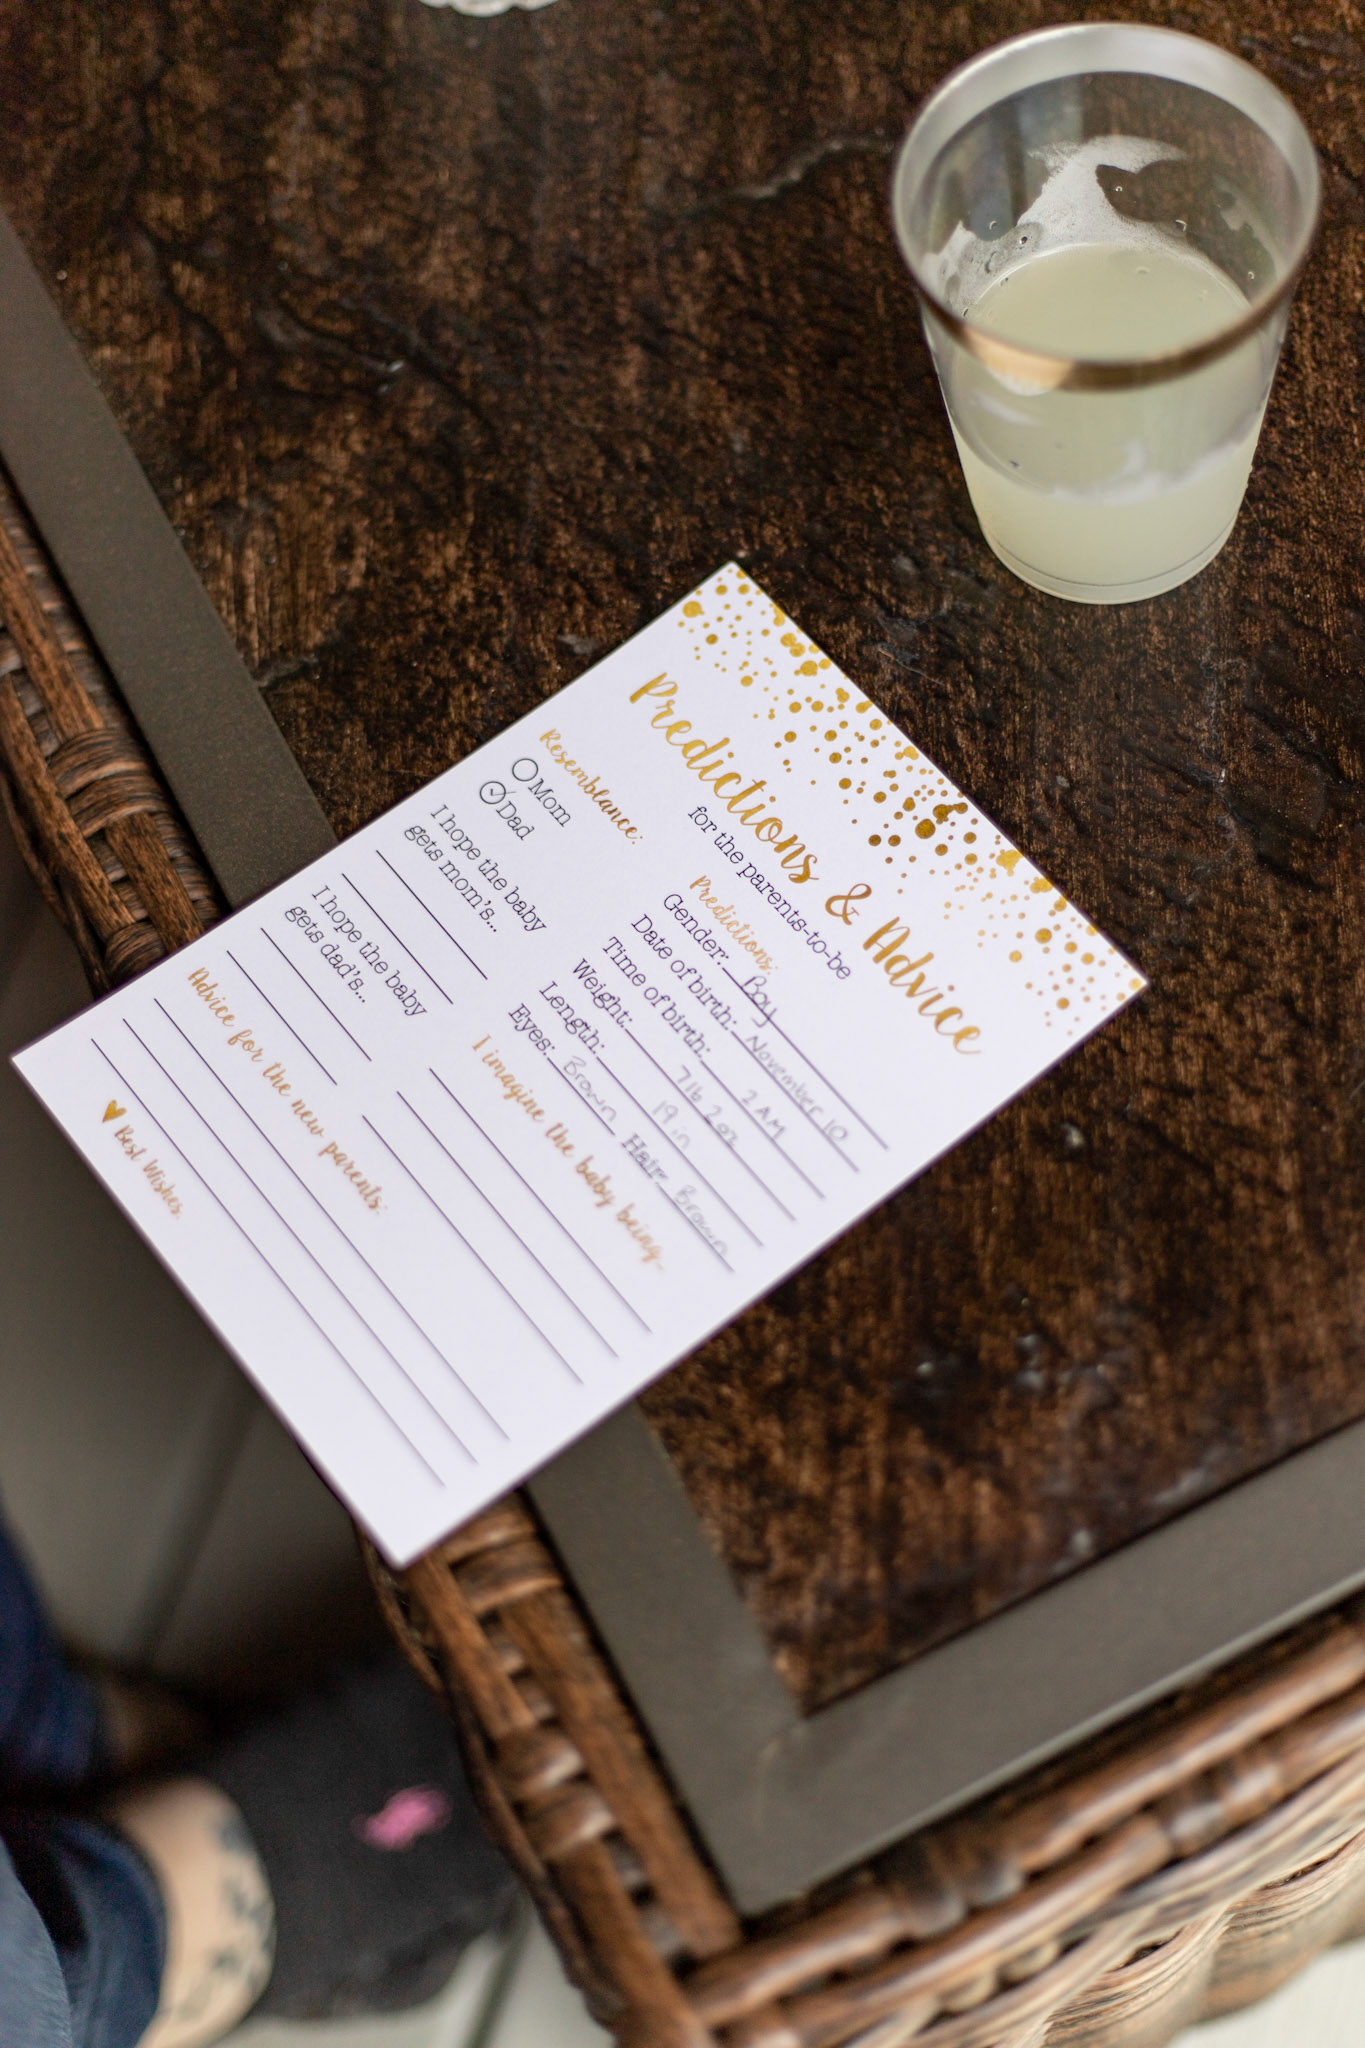 Predictions & Advice
for the parents-to-be
Predictions:
Gender: Boy
Date of birth: November 10
Time of birth: 2 AM
Weight: 7 lb 2 oz
Length: 19 in
Eyes: Brown Hair: Brown
I imagine the baby being...
Resemblance:
Mom
Dad
I hope the baby
gets mom's...
I hope the baby
gets dad's...
Advice for the new parents:
Best Wishes,